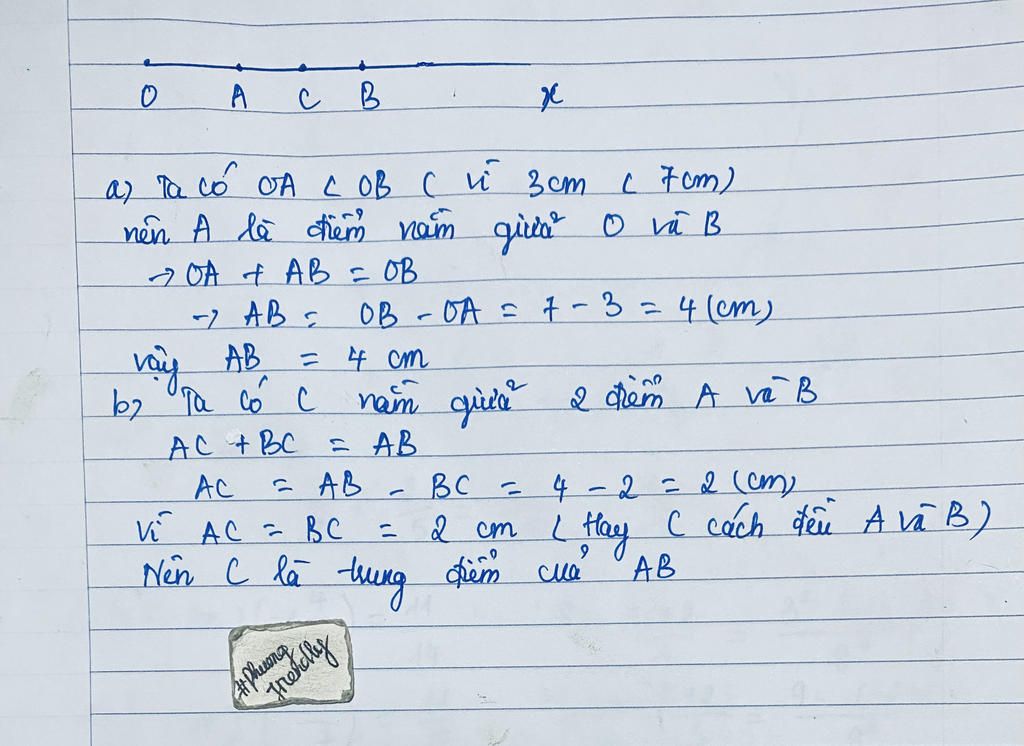 O A C B x
a) Ta có OA < OB ( vì 3cm < 7cm)
nên A là điểm nằm giữa O và B
→ OA + AB = OB
→ AB = OB - OA = 7 - 3 = 4 (cm)
vậy AB = 4 cm
b) Ta có C nằm giữa 2 điểm A và B
AC + BC = AB
AC = AB - BC = 4 - 2 = 2 (cm)
Vì AC = BC = 2 cm ( Hay C cách đều A và B)
Nên C là trung điểm của AB
#Phuong
trendky